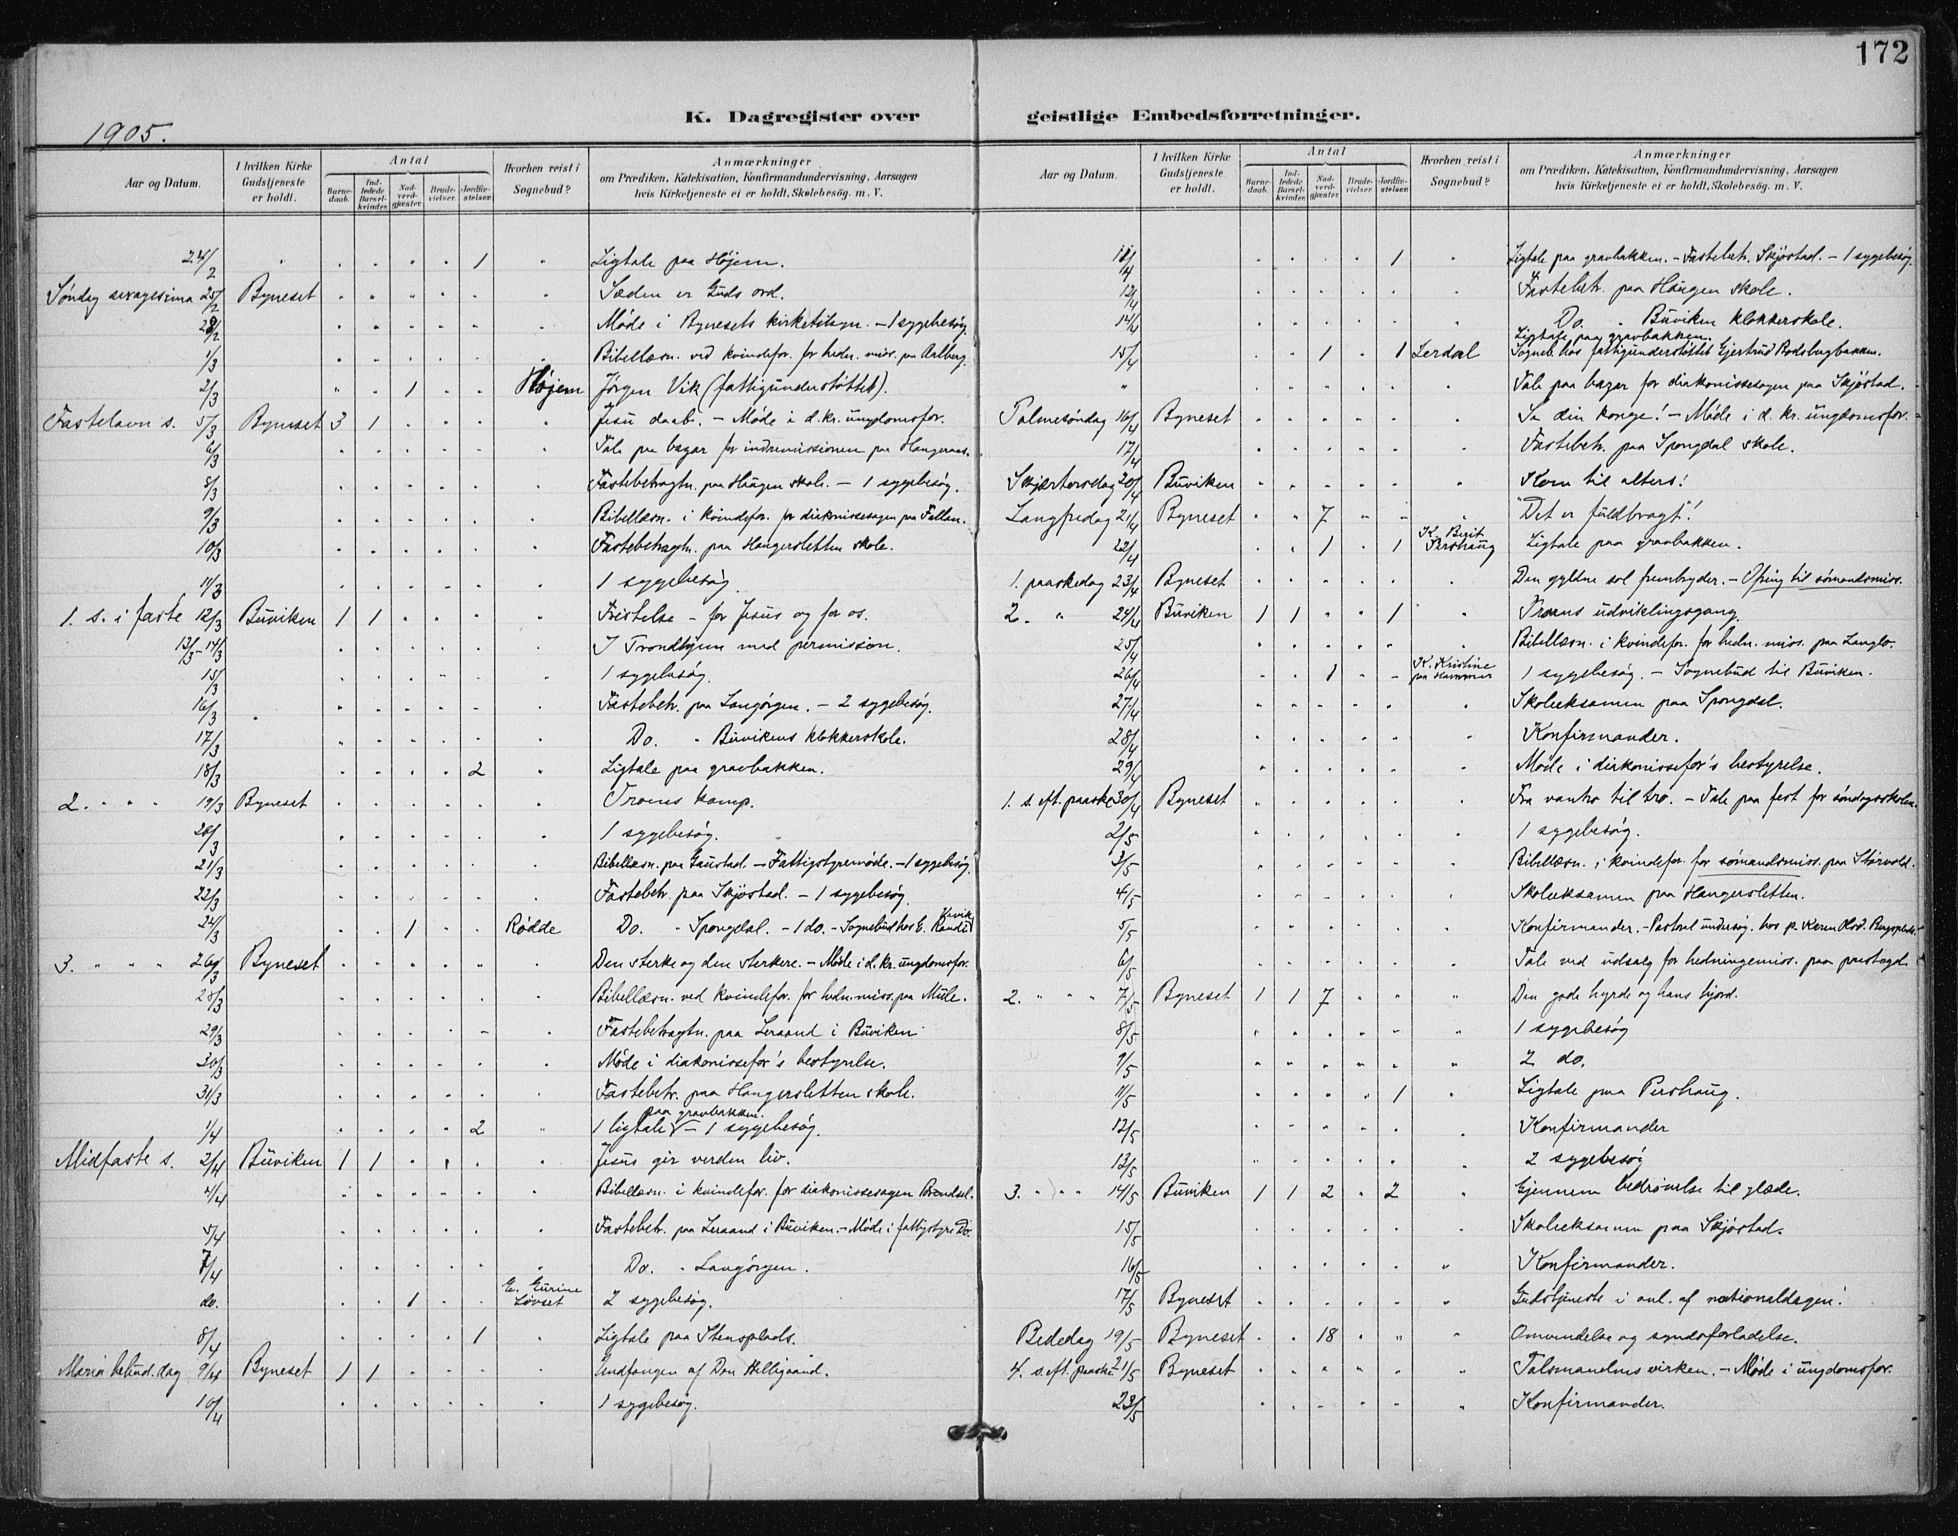 172
K. Dagregister over geistlige Embedsforretninger.
1905.
Aar og Datum. I hvilken Kirke Gudstjeneste er holdt. Antal Barnedaab. Indledede Barselkvinder. Nadverdgjæster. Brudevielser. Jordfæstelser. Hvorhen reist i Sognebud? Anmærkninger om Prædiken, Katekisation, Konfirmandundervisning, Aarsagen hvis Kirketjeneste ei er holdt, Skolebesøg. m. V.
24/2 " . . . . 1 " Ligtale paa Højem.
Søndag sexagesima 25/2 Byneset . . . . . " Sæden er Guds ord.
28/2 . . . . . " Møde i Bynesets kirketilsyn. – 1 sygebesøg.
1/3 . . . . . " Bibellæsn. ved kvindefor. for hedn. miss. paa Aalberg.
2/3 " . 1 . . Højem Jørgen Vik (fattigunderstøttet).
Fastelavn s. 5/3 Byneset 3 1 . . . " Jesu daab. – Møde i d. kr. ungdomsfor.
6/3 . . . . . " Tale paa bazar for indremissionen paa
8/3 . . . . . " Fastebetragtn. paa Haugen skole. – 1 sygebesøg.
9/3 . . . . . " Bibellæsn. i kvindefor. for diakonissesagen paa Fallan.
10/3 . . . . . " Fastebetragtn. paa Hangersletten skole.
11/3 . . . . . " 1 sygebesøg.
1. s. i faste 12/3 Buviken 1 1 . . . " Fristelse – for Jesus og for os.
13/3 – 14/3 . . . . . " I Trondhjem med permission.
15/3 . . . . . " 1 sygebesøg.
16/3 . . . . . " Fastebetr. paa Langørgen. – 2 sygebesøg.
17/3 . . . . . " Do. " Buvikens klokkerskole.
18/3 . . . . 2 " Ligtale paa gravbakken.
2. " " " 19/3 Byneset . . . . . " Troens kamp.
20/3 . . . . . " 1 sygebesøg.
21/3 . . . . . " Bibellæsn. paa Gaustad. – Fattigstyremøde. – 1 sygebesøg.
22/3 . . . . . " Fastebetr. paa Skjøstad. – 1 sygebesøg.
24/3 . . 1 . . Rødde Do. " Spongdal. – 1 do. – Sognebud hos E.
3. " " " 26/3 Byneset . . . . . " Den sterke og den sterkere. – Møde i d. kr. ungdomsfor.
28/3 . . . . . " Bibellæsn. ved kvindefor. for hedn. miss. paa Mule.
29/3 . . . . . " Fastebetragtn. paa Leraand i Buviken.
30/3 . . . . . " Møde i diakonissefor's bestyrelse.
31/3 . . . . . " Fastebetr. paa Hangersletten skole.
1/4 . . . . 2 " 1 ligtale paa gravbakken. – 1 sygebesøg.
Midfaste s. 2/4 Buviken 1 1 . . . " Jesus gir verden liv.
4/4 . . . . . " Bibellæsn. i kvindefor. for diakonissesagen Brendsel.
5/4 . . . . . " Fastebetr. paa Leraand i Buviken. – Møde i fattigstyre Do.
7/4 . . . . . " Do. " Langørgen.
do. . . 1 . . E. Gurine Løvset 2 sygebesøg.
8/4 . . . . 1 " Ligtale paa Stensplads.
Mariæ bebud. dag 9/4 Byneset 1 1 . . . " Undfangen af Den Helligaand.
10/4 . . . . . " 1 sygebesøg.
Aar og Datum. I hvilken Kirke Gudstjeneste er holdt. Antal Barnedaab. Indledede Barselkvinder. Nadverdgjæster. Brudevielser. Jordfæstelser. Hvorhen reist i Sognebud? Anmærkninger om Prædiken, Katekisation, Konfirmandundervisning, Aarsagen hvis Kirketjeneste ei er holdt, Skolebesøg. m. V.
11/4 . . . . 1 " Ligtale paa gravbakken. – Fastebetr. Skjøstad. – 1 sygebesøg.
12/4 . . . . . " Fastebetr. paa Haugen skole.
14/4 . . . . . " Do. " Buviken klokkerskole.
15/4 . . 1 . 1 Lerdal Ligtale paa gravbakken. Sogneb. hos fattigunderstøttet Gjertrud
" . . . . . " Tale paa bazar for diakonissesagen paa Skjøstad.
Palmesøndag 16/4 Byneset . . . . . " Se din konge! – Møde i d. kr. ungdomsfor.
17/4 . . . . . " Fastebetr. paa Spongdal skole.
Skjærtorsdag 20/4 Buviken . . . . . " Kom til alters!
Langfredag 21/4 Byneset . . 7 . . " "Det er fuldbragt"!
22/4 . . 1 . 1 K. Berit Pershaug Ligtale paa gravbakken.
1. paaskedag 23/4 Byneset . . . . . " Den gyldne sol frembryder. – Ofring til sømandsmiss.
2. " 24/4 Buviken 1 1 . . 1 " Troens udviklingsgang.
25/4 . . . . . " Bibellæsn. i kvindefor. for hedn. miss. paa Langlo.
26/4 . . 1 . . K. Kristine paa Hammer 1 sygebesøg. – Sognebud til Buviken.
27/4 . . . . . " Skoleeksamen paa Spongdal.
28/4 . . . . . " Konfirmander.
29/4 . . . . . " Møde i diakonissefor's bestyrelse.
1. s. eft. paaske 30/4 Byneset . . . . . " Fra vantro til tro. – Tale paa fest for søndagsskolen.
2/5 . . . . . " 1 sygebesøg.
3/5 . . . . . " Bibellæsn. i kvindefor. for sømandsmiss. paa Størvold.
4/5 . . . . . " Skoleeksamen paa Hangersletten.
5/5 . . . . . " Konfirmander. – Pastoral undersøg. hos p. Karen
6/5 . . . . . " Tale ved udsalg for hedningemiss. paa prestegd.
2. " " " 7/5 Byneset 1 1 7 . . " Den gode hyrde og hans hjord.
8/5 . . . . . " 1 sygebesøg
9/5 . . . . . " 2 do.
11/5 . . . . 1 Ligtale paa Pershaug.
12/5 . . . . . " Konfirmander
13/5 . . . . . " 2 sygebesøg
3. " " " 14/5 Buviken 1 1 2 . 2 " Gjennem bedrøvelse til glæde.
15/5 . . . . . " Skoleeksamen paa Skjøstad.
16/5 . . . . . " Konfirmander.
17/5 Byneset . . . . . " Gudstjeneste i anl. af nationaldagen!
Bededag 19/5 Byneset . . 18 . . " Omvendelse og syndsforladelse.
4. s. eft. paaske 21/5 Byneset . . . . . " Talsmandens virken. – Møde i ungdomsfor.
23/5 . . . . . " Konfirmander.